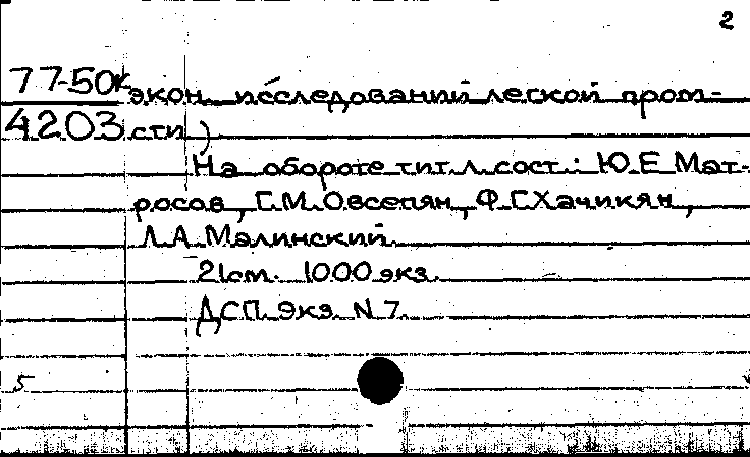 2
77-50к экон. исследований легкой пром-
4203 сти)
На обороте тит. л. сост.: Ю.Е. Мат-
росов, Г.М. Овсепян, Ф.Г. Хачикян,
Л.А. Малинский.
21см. 1000 экз.
ДСП. Экз. N 7.
5